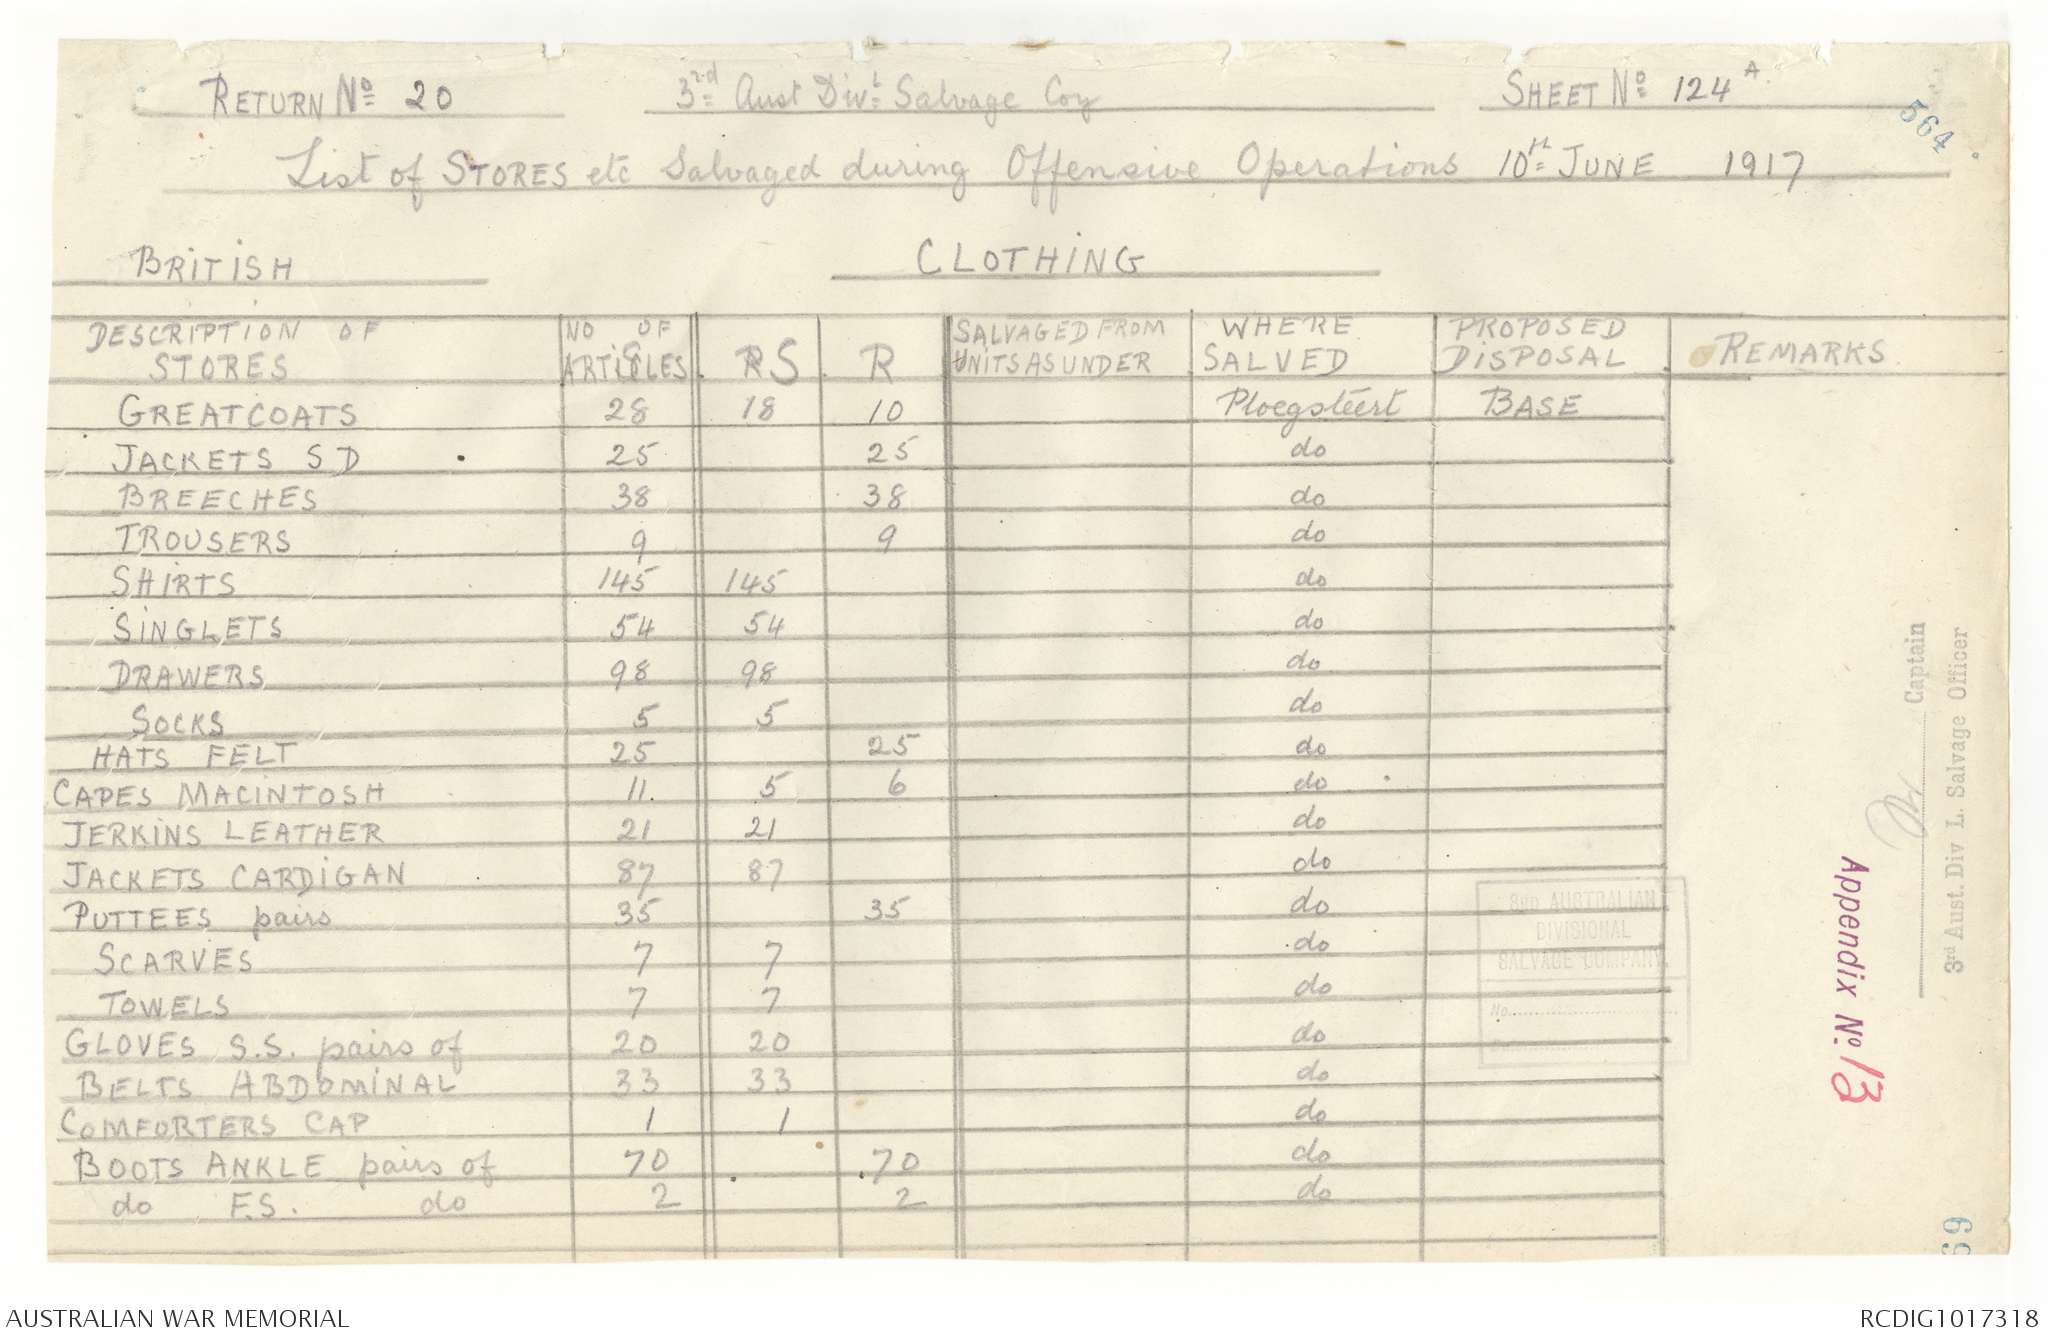 RETURN No 20 3rd Aust Divl Salvage Coy SHEET No 124A.
564
List of STORES etc Salvaged during Offensive Operations 10th JUNE 1917
BRITISH CLOTHING
DESCRIPTION OF STORES NO OF ARTICLES RS R SALVAGED FROM UNITS AS UNDER WHERE SALVED PROPOSED DISPOSAL REMARKS
GREATCOATS 28 18 10 Ploegsteert BASE
JACKETS S D 25 25 do
BREECHES 38 38 do
TROUSERS 9 9 do
SHIRTS 145 145 do
SINGLETS 54 54 do
DRAWERS 98 98 do
SOCKS 5 5 do
HATS FELT 25 25 do
CAPES MACINTOSH 11 5 6 do
JERKINS LEATHER 21 21 do
JACKETS CARDIGAN 87 87 do
PUTTEES pairs 35 35 do
SCARVES 7 7 do
TOWELS 7 7 do
GLOVES S.S. pairs of 20 20 do
BELTS ABDOMINAL 33 33 do
COMFORTERS CAP 1 1 do
BOOTS ANKLE pairs of 70 70 do
do F.S. do 2 2 do
3RD AUSTRALIAN
DIVISIONAL
SALVAGE COMPANY.
No.
Captain
3rd Aust. Div L. Salvage Officer
Appendix No. 13
69
AUSTRALIAN WAR MEMORIAL RCDIG1017318